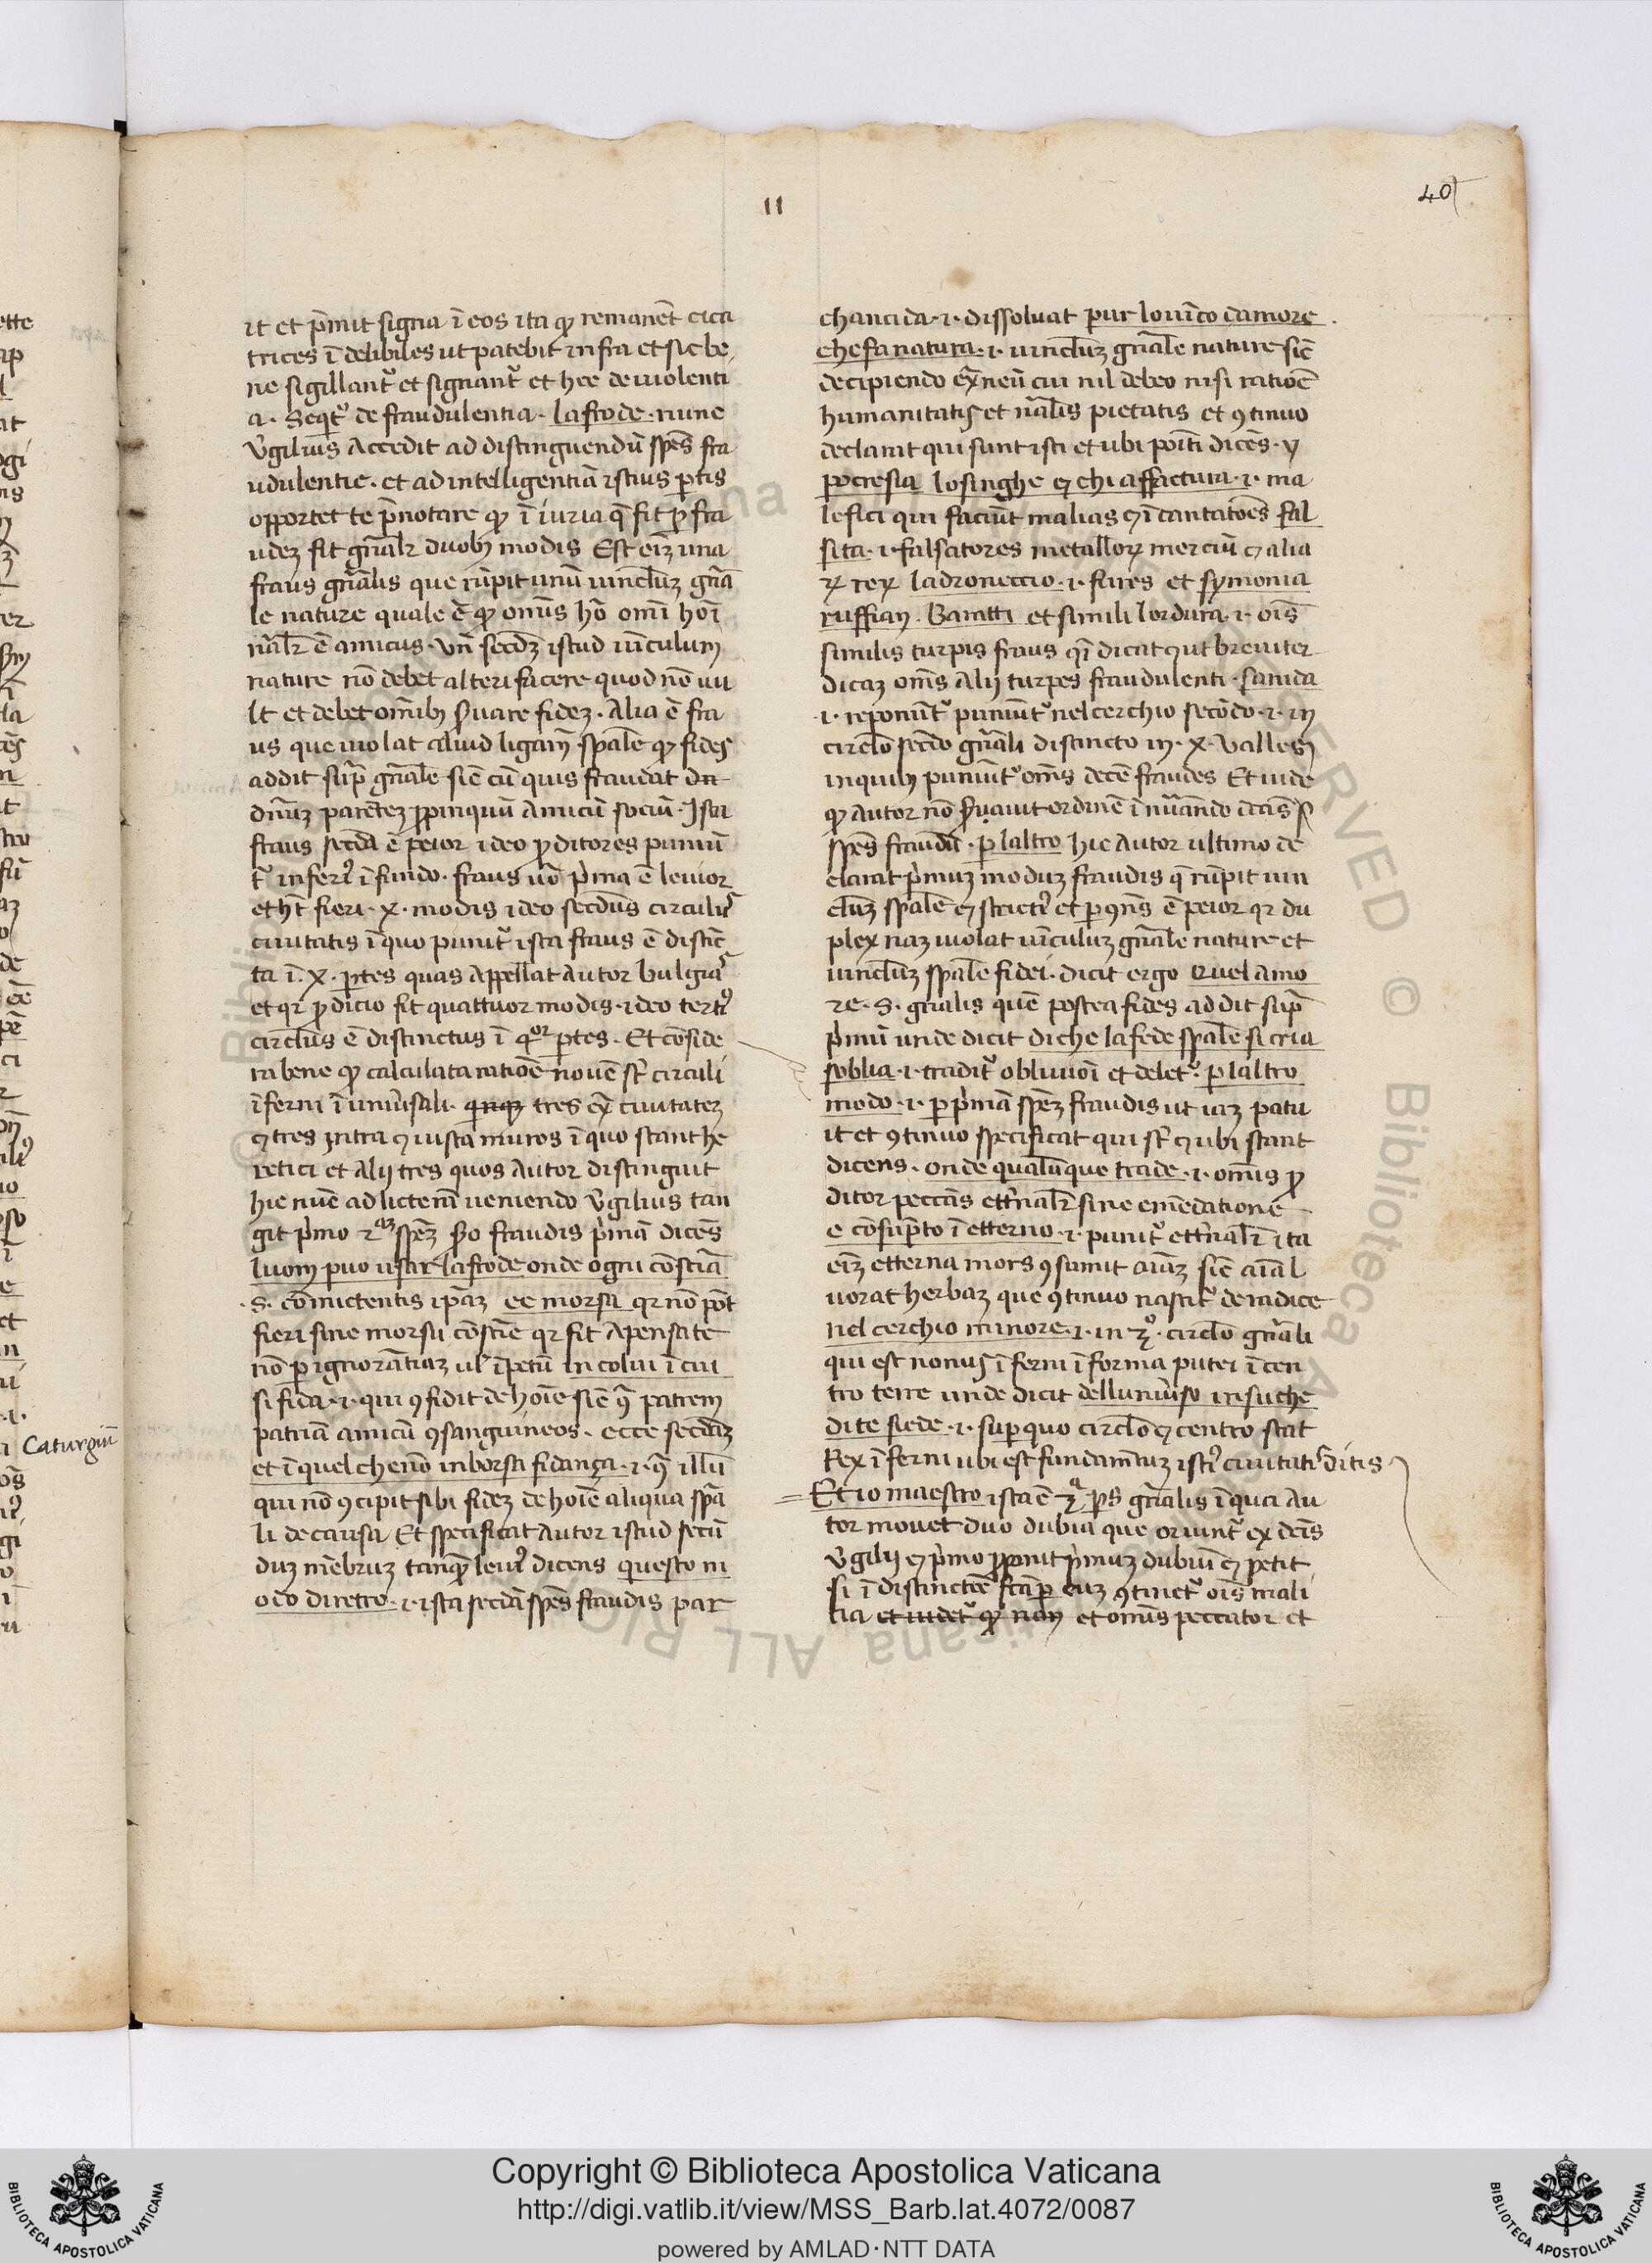 11
40
it et p̄mit signa ī eos ita qđ remanēt cica
trices ī delibiles ut patebit infra et sic be
ne sigillant̄ et signant̄ et hec de uiolenti
a. Seqt̄ de fraudulentia. la frode. nunc
v̄gilius accedit ad distinguendū sp̄es fra
udulentie. et ad intelligentiā istius p̄tis
opportet te p̄notare qđ ī iuria q̄ fit p̱ fra
udeȝ fit gn̄alr̄ duobȝ modis Est eīȝ una
fraus gn̄alis que rūpit unū uincl̄uȝ gn̄a
le nature quale ē qđ om̄is hō om̄i hoī
nālr̄ ē amicus. Vn̄ sec̄dȝ istud uīculum
nature nō debet alteri facere quod nō uu
lt et debet om̄ibȝ s̄uare fideȝ. Alia ē fra
us que uiolat aliud ligam̄ sp̄ale qđ fides
addit sup̄ gn̄ale sic̄ cū quis fraudat dn̄
dn̄uȝ parēteȝ ꝓpinquū amicū sociū. Ista
fraus sec̄da ē peior ideo ꝓditores puniū
t̄ inferꝰ ī fundo. fraus uō p̄ma ē leuior
et hт̄ fieri. x. modis ideo sec̄dus circulus
ciuitatis ī quo punit̄ ista fraus ē distīc
ta ī. x. p̄tes quas appellat autor bulgias
et qr ꝓdicio fit quattuor modis. ideo tertiꝰ
circl̄us ē distinctus ī qᵒʳ p̄tes. Et cōside
ra bene qđ calculata ratiōe nouē st̄ circuli
īferni ī uniūsali. tres ex̄ ciuitateȝ
⁊ tres intra ⁊ iusta muros ī quo stant he
retici et alij tres quos autor distinguit
hic nūc ad licterā ueniendo v̄gilius tan
git p̄mo 2ᵃᵐ sp̄eȝ fraudis p̄mā dicēs
luom puo usar la frode onde ogni cōsciā
.S. cōmictentis ip̄aȝ ee morsa qr nō pōt
fieri sine morsu cōsciē qr fit apensate
nō p̱ ignorātiaȝ ul̄ īpetū in colui ī cui
si fida. i. qui ꝯfidit de hoīe sic̄ q̄ patrem
patriā amicū ꝯsanguineos. ecce sec̄daȝ
et ī quel che nō inborsa fidança. i. q̄ illū
qui nō ꝯcipit sibi fideȝ de hoīe aliqua sp̄a
li de causa Et specificat autor istud secū
duȝ mēbruȝ tanq̄ leuiꝰ dicens questo m
odo diretro. i. ista sec̄da sp̄es fraudis par
chancida. i. dissoluat pur lo uīco damore
che fa natura. i. uincl̄uȝ gn̄ale nature sic̄
decipiendo ex̄neū cui nil debeo nisi ratiōe
humanitatis et nālis pietatis et ꝯtinuo
declarat qui sunt isti et ubi poīti dicēs. y
pocresia losinghe ⁊ chi affactura. i. ma
lefici qui faciūt malias ⁊ ī cantatōes fal
sita. i. falsatores metalloꝝ merciū ⁊ alia
ꝝ reꝝ ladroneccio. i. fures et symonia
ruffian. Baratti et simili lordura. i. oīs
similis turpis fraus qī dicat ⁊ ut breuiter
dicaȝ om̄s alij turpes fraudulenti. sanida
.i. reponunt̄ puniunt̄ nel cerchio secōdo. i. in
circl̄o sec̄do gn̄ali distincto in. x. valles
in quibȝ puniūt̄ om̄s decē fraudes Et uide
qđ autor nō s̄uauit ordinē ī nūando dc̄as
sp̄es fraudū. p̱ laltro hic autor ultimo de
clarat p̄muȝ moduȝ fraudis q̄ rūpit uin
cl̄uȝ sp̄ale ⁊ strictiꝰ et p̱ ꝯn̄s ē peior qr du
plex naȝ uiolat uīculuȝ gn̄ale nature et
uincl̄uȝ sp̄ale fidei. dicit ergo Quel amo
re. S. gn̄alis quē postea fides addit sup̄
p̄mū unde dicit di che la fede sp̄ale si cria
soblia. i. tradit̄ obliuiōi et delet̄. p̱ laltro
modo. i. p̱ p̄mā sp̄eȝ fraudis ut iaȝ patu
it et ꝯtinuo specificat qui st̄ ⁊ ubi stant
dicens. onde qualūque trade. i. om̄is ꝓ
ditor peccās ett̄nalr̄ sine emēdatione
e cōsūpto ī etterno. i. punit̄ ett̄nalr̄ ita
eīȝ etterna mors ꝯsumit aīaȝ sic̄ aīal
uorat herbaȝ que ꝯtinuo nascit̄ de radice
nel cerchio minore. i. in 3ᵒ. circl̄o gn̄ali
qui est nonus īferni ī forma putei ī cen
tro terre unde dicit dellunuīso in su che
dite siede. i. sup̱ quo circl̄o ⁊ centro stat
Rex īferni ubi est fundam̄tuȝ istiꝰ ciuitatis ditis
Et io maestro ista ē 3ᵃ ps̄ gn̄alis ī qua au
tor mouet duo dubia que oriunt̄ ex dc̄is
v̄gilij ⁊ p̄mo ꝓponit p̄muȝ dubiū ⁊ petit
si ī distinctōe ꝯtinet̄ oīs mali
tia et uidet̄ qđ non et om̄is peccator et
Caturgiū
Copyright © Biblioteca Apostolica Vaticana
http://digi.vatlib.it/view/MSS_Barb.lat.4072/0087
powered by AMLAD·NTT DATA